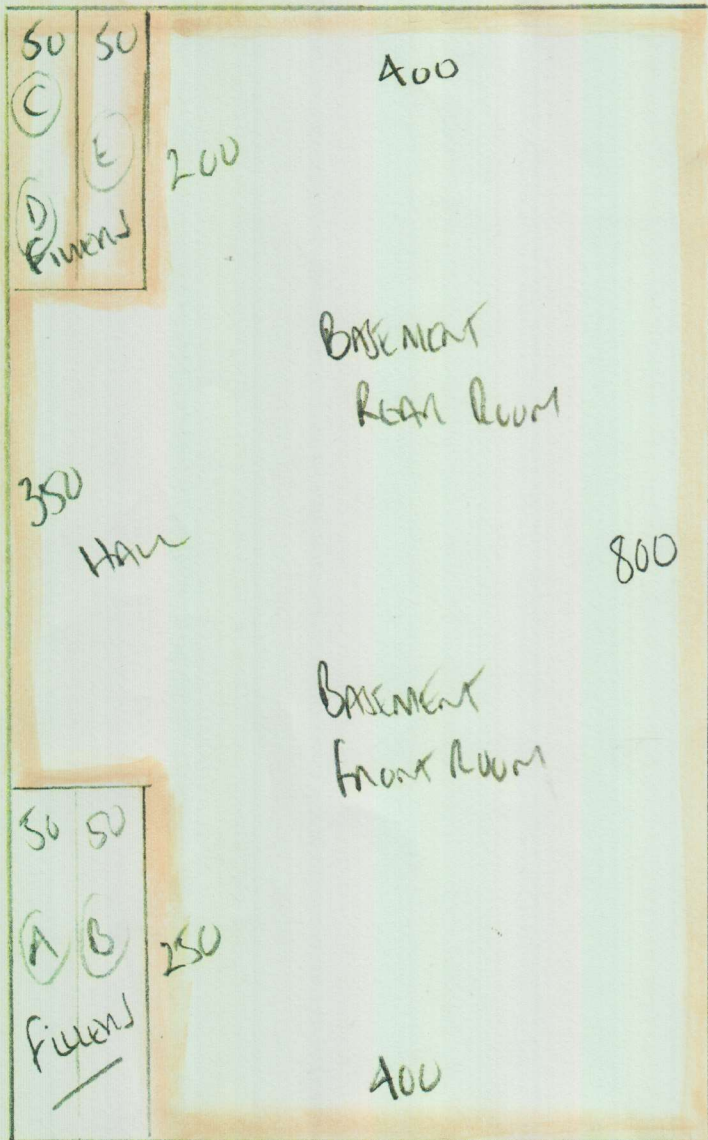 50 50
400
C
E
200
D
Fillers
BASEMENT
REAR ROOM
350
HALL
800
BASEMENT
FRONT ROOM
50 50
A B
250
Fillers
400